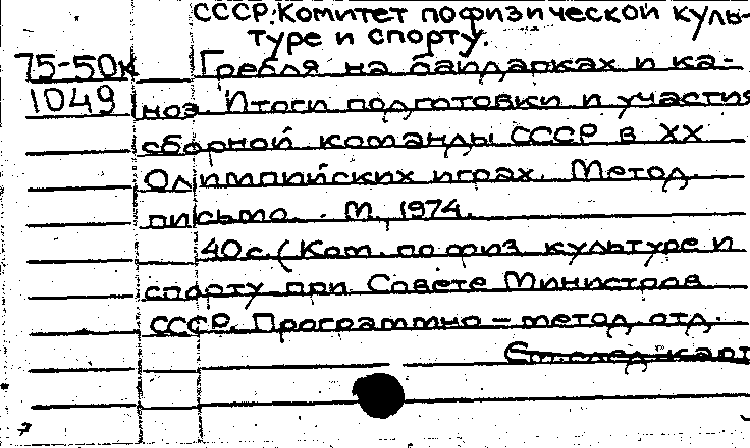 СССР. Комитет по физической куль-
туре и спорту.
75-50к Гребля на байдарках и ка-
1049 ноэ. Итоги подготовки и участия
сборной команды СССР в XX
Олимпийских играх. Метод.
письмо. . М., 1974.
40с. (Ком. по физ. культуре и
спорту при Совете Министров
СССР. Программно-метод. отд.
См. след. карт